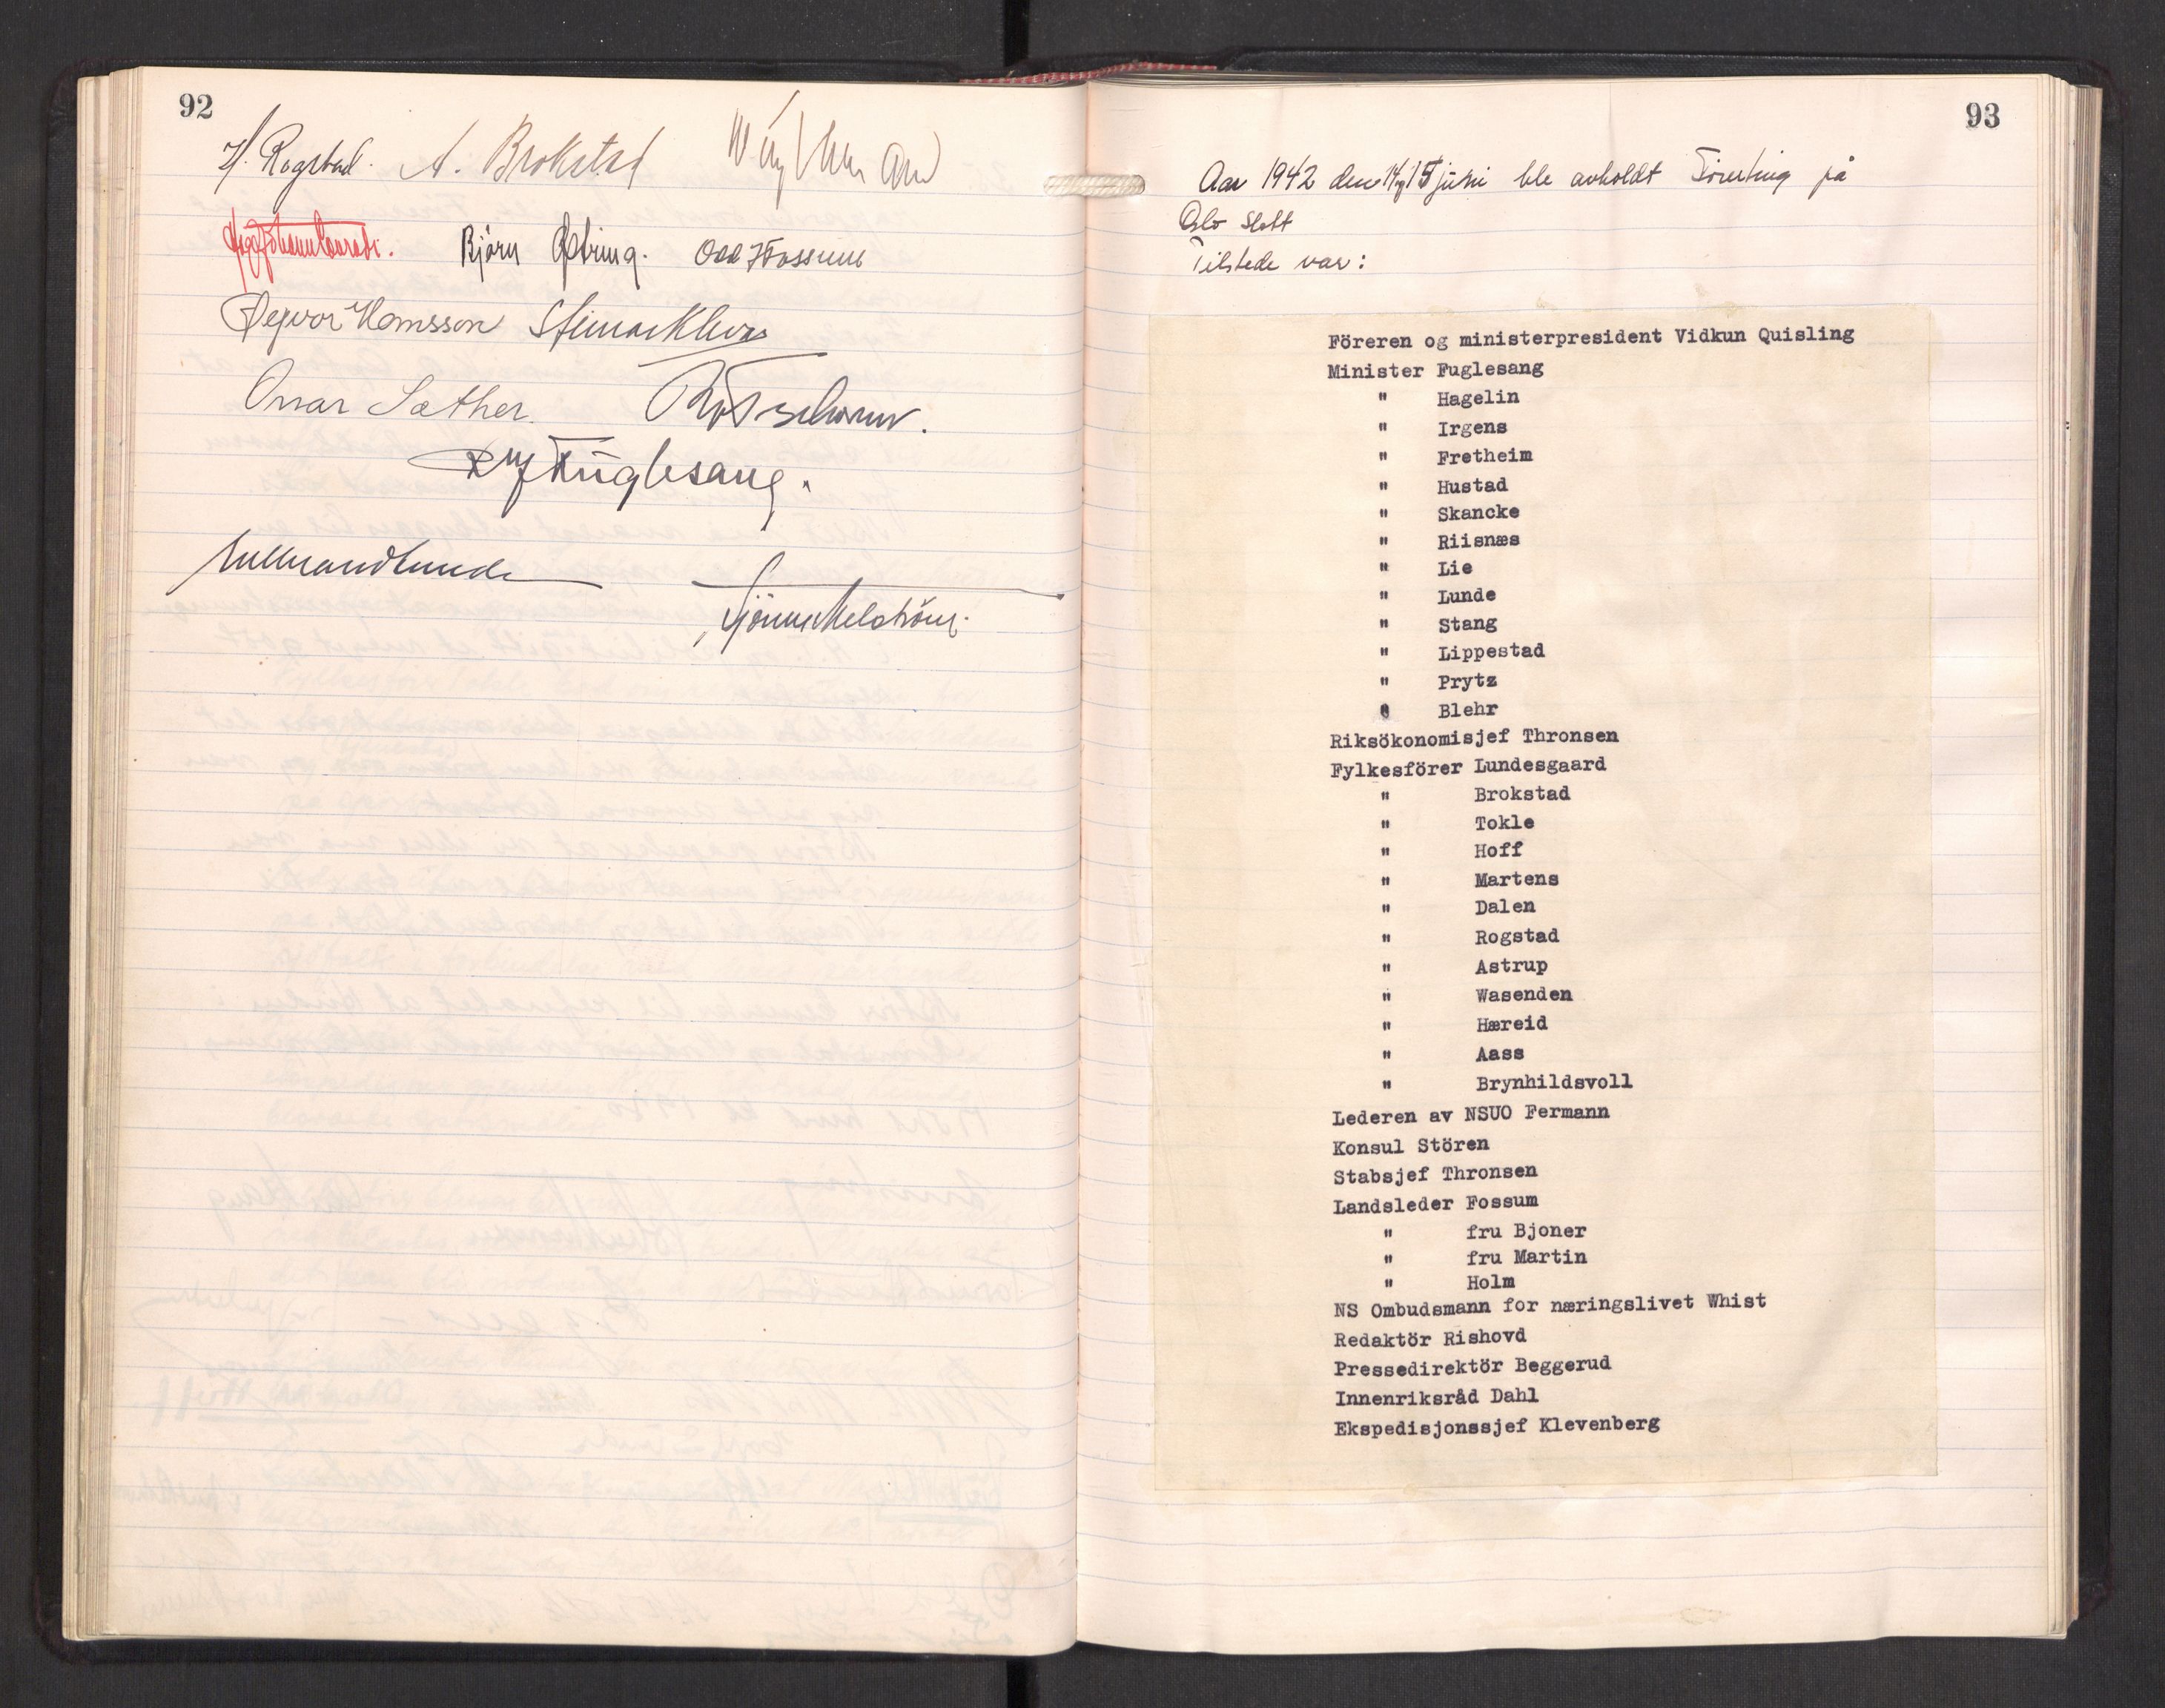 92
H. Rogstad. A. Brokstad
Björn Östring. Odd Fossum
Ørnar Sæther.
R J Fuglesang.
Gulbrand Lunde
93
Aar 1942 den 14 og 15 juni ble avholdt Förerting på
Oslo Slott
Tilstede var:
Föreren og ministerpresident Vidkun Quisling
Minister Fuglesang
" Hagelin
" Irgens
" Fretheim
" Hustad
" Skancke
" Riisnæs
" Lie
" Lunde
" Stang
" Lippestad
" Prytz
" Blehr
Riksökonomisjef Thronsen
Fylkesförer Lundesgaard
" Brokstad
" Tokle
" Hoff
" Martens
" Dalen
" Rogstad
" Astrup
" Wasenden
" Hæreid
" Aass
" Brynhildsvoll
Lederen av NSUO Fermann
Konsul Stören
Stabsjef Thronsen
Landsleder Fossum
" fru Bjoner
" fru Martin
" Holm
NS Ombudsmann for næringslivet Whist
Redaktör Rishovd
Pressedirektör Beggerud
Innenriksråd Dahl
Ekspedisjonssjef Klevenberg